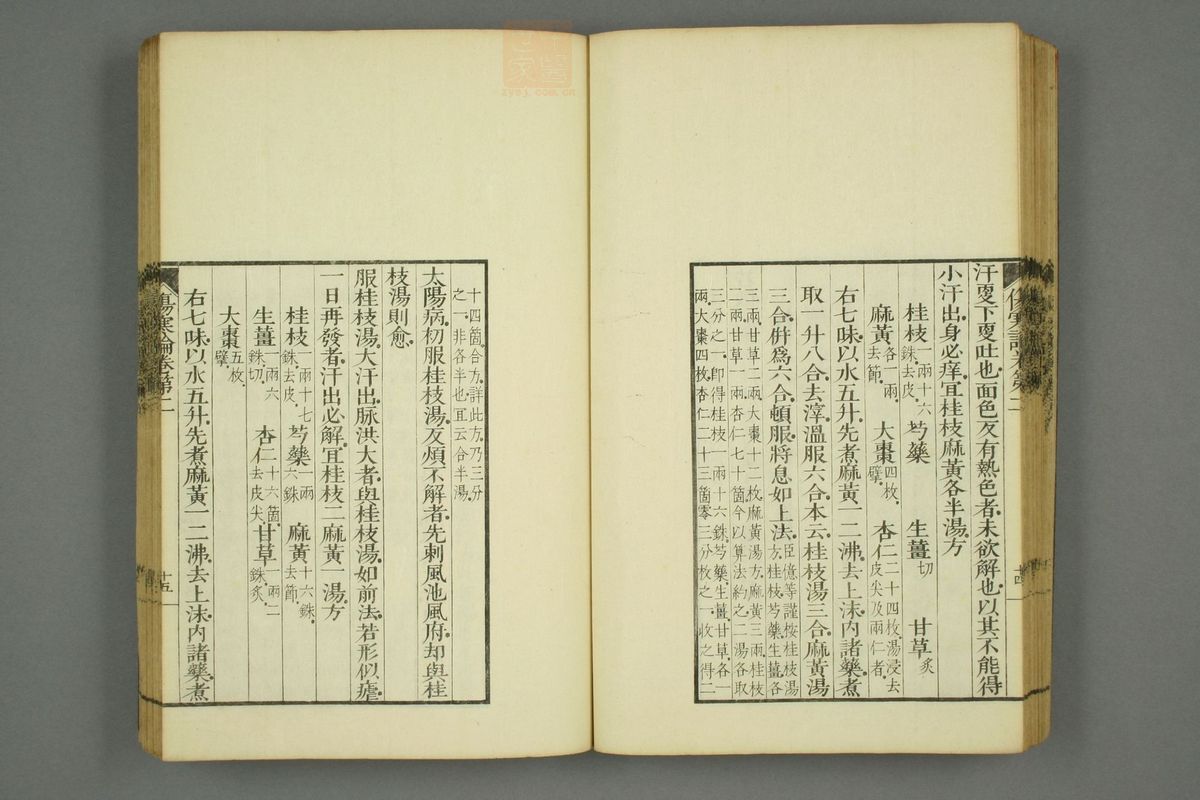 汗更下更吐也面色反有熱色者未欲解也以其不能得
小汗出身必痒宜桂枝麻黃各半湯方
桂枝一兩十六銖去皮 芍藥 生薑切 甘草炙
麻黃各一兩去節 大棗四枚擘 杏仁二十四枚湯浸去皮尖及兩仁者
右七味以水五升先煮麻黃一二沸去上沫內諸藥煮
取一升八合去滓溫服六合本云桂枝湯三合麻黃湯
三合併爲六合頓服將息如上法臣億等謹按桂枝湯方桂枝芍藥生薑各
三兩甘草二兩大棗十二枚麻黃湯方麻黃三兩桂枝二兩甘草一兩杏仁七十箇今以算法約之二湯各取
三分之一即得桂枝一兩十六銖芍藥生薑甘草各一兩大棗四枚杏仁二十三箇零三分枚之一收之得二
十四
十四箇合方詳此方乃三分之一非各半也宜云合半湯
太陽病初服桂枝湯反煩不解者先刺風池風府却與桂
枝湯則愈
服桂枝湯大汗出脉洪大者與桂枝湯如前法若形似瘧
一日再發者汗出必解宜桂枝二麻黃一湯方
桂枝一兩十七銖去皮 芍藥一兩六銖 麻黃十六銖去節
生薑一兩六銖切 杏仁十六箇去皮尖 甘草一兩二銖炙
大棗五枚擘
右七味以水五升先煮麻黃一二沸去上沫內諸藥煮
傷寒論卷第二
十五
zysj.com.cn